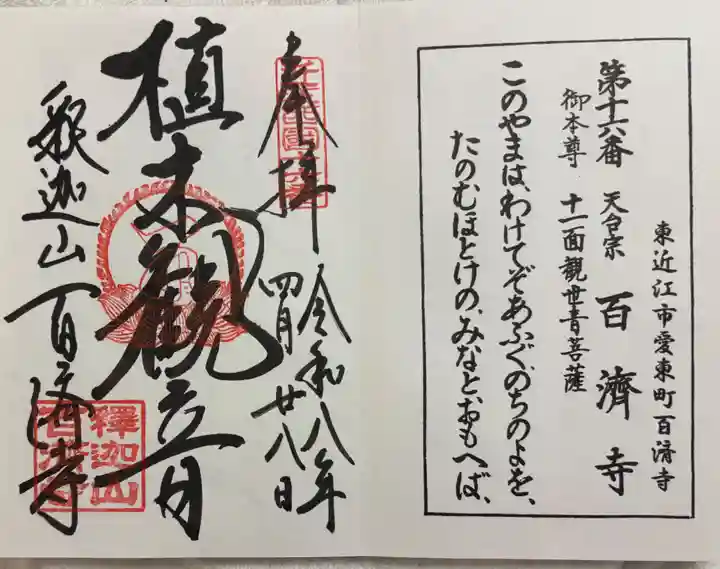 東近江市愛東町百済寺
第十六番 天台宗 百濟寺
御本尊 十一面観世音菩薩
このやまは、わけてぞあふぐ、のちのよを、
たのむほとけの、みなと、おもへば、
奉拝
令和八年
四月廿八日
植木観音
釈迦山百済寺
釋迦山
百濟寺